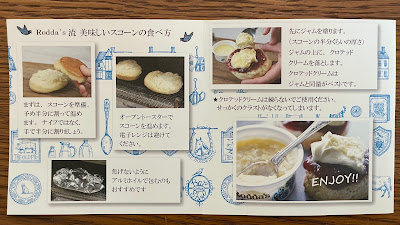 Rodda's流 美味しいスコーンの食べ方
まずは、スコーンを準備。
予め半分に割って温め
ます。ナイフではなく、
手で半分に割りましょう。
オーブントースターで
スコーンを温めます。
電子レンジは避けて
ください。
焦げないように
アルミホイルで包むのも
おすすめです
先にジャムを塗ります。
(スコーンの半分くらいの厚さ)
ジャムの上に、クロテッド
クリームを落します。
クロテッドクリームは
ジャムと同量がベストです。
★クロテッドクリームは練らないでご使用ください。
せっかくのクラストがなくなってしまいます。
ENJOY!!